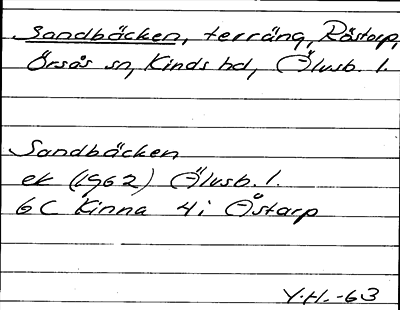 Sandbäcken, terräng, Råstarp,
Örsås sn, Kinds hd, Älvsb. l.
Sandbäcken
ek (1962) Älvsb. l.
6 C Kinna 4i Östarp
Y.H. -63